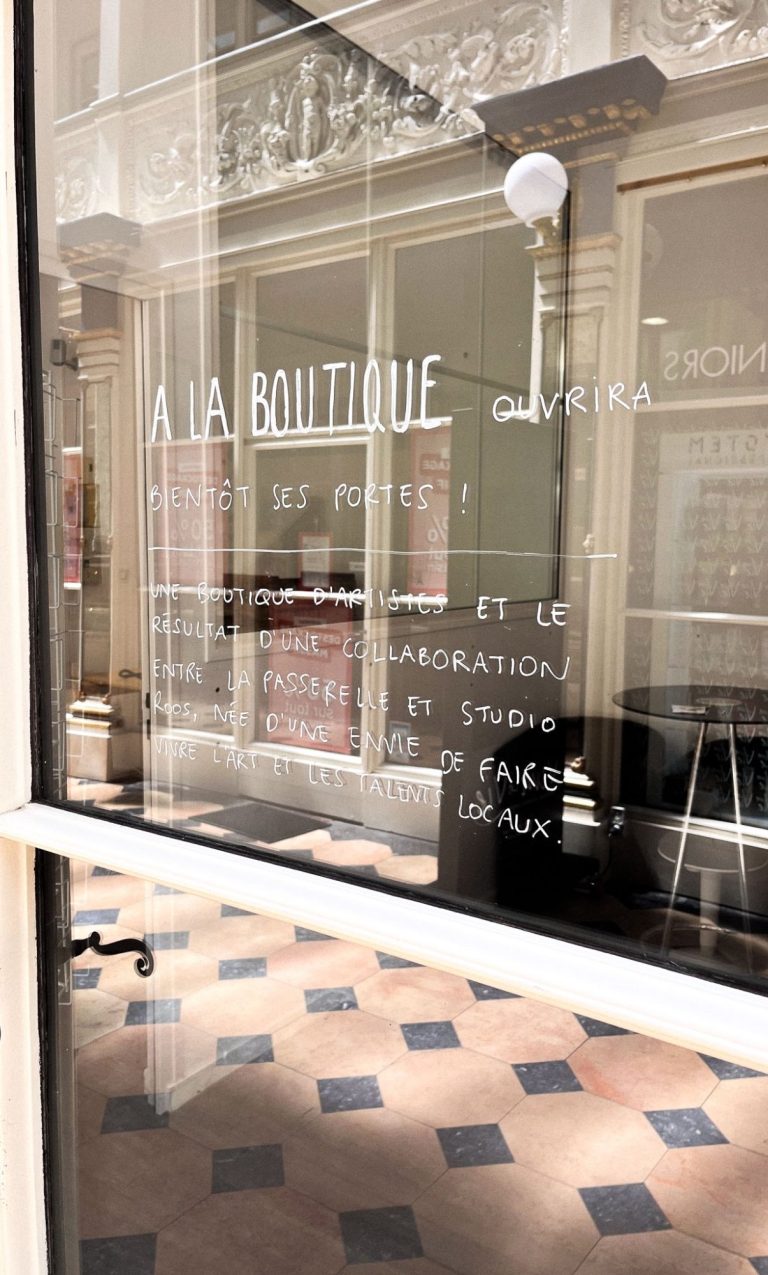 A LA BOUTIQUE OUVRIRA
BIENTÔT SES PORTES !
UNE BOUTIQUE D'ARTISTES ET LE
RÉSULTAT D'UNE COLLABORATION
ENTRE LA PASSERELLE ET STUDIO
ROOS, NÉE D'UNE ENVIE DE FAIRE
VIVRE L'ART ET LES TALENTS LOCAUX.
NIORS
Sur tout